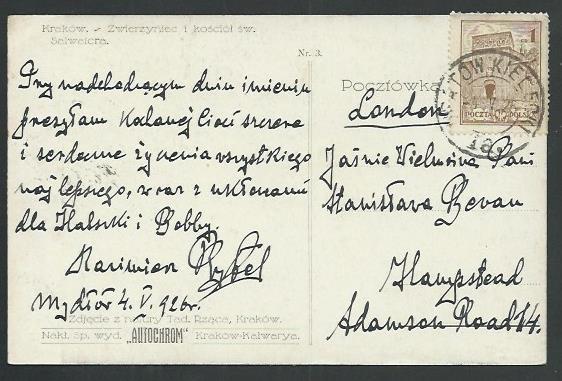 Kraków. - Zwierzyniec i kościół św.
Salwatora.
Nr. 3.
Przy nadchodzącym dniu imienin
przesyłam Kochanej Cioci szczere
i serdeczne życzenia wszystkiego
najlepszego, wraz z ukłonami
dla Halszki i Bobby.
Kazimierz
4. V. 926r.
Zdjęcie z natury Tad. Rząca, Kraków.
Nakł. Sp. wyd. „AUTOCHROM" Kraków-Kalwarya.
Pocztówka
1
POCZTA POLSKA
London
Jaśnie Wielmożna Pani
Stanisława Bevan
Hampstead
Adamson Road 14.